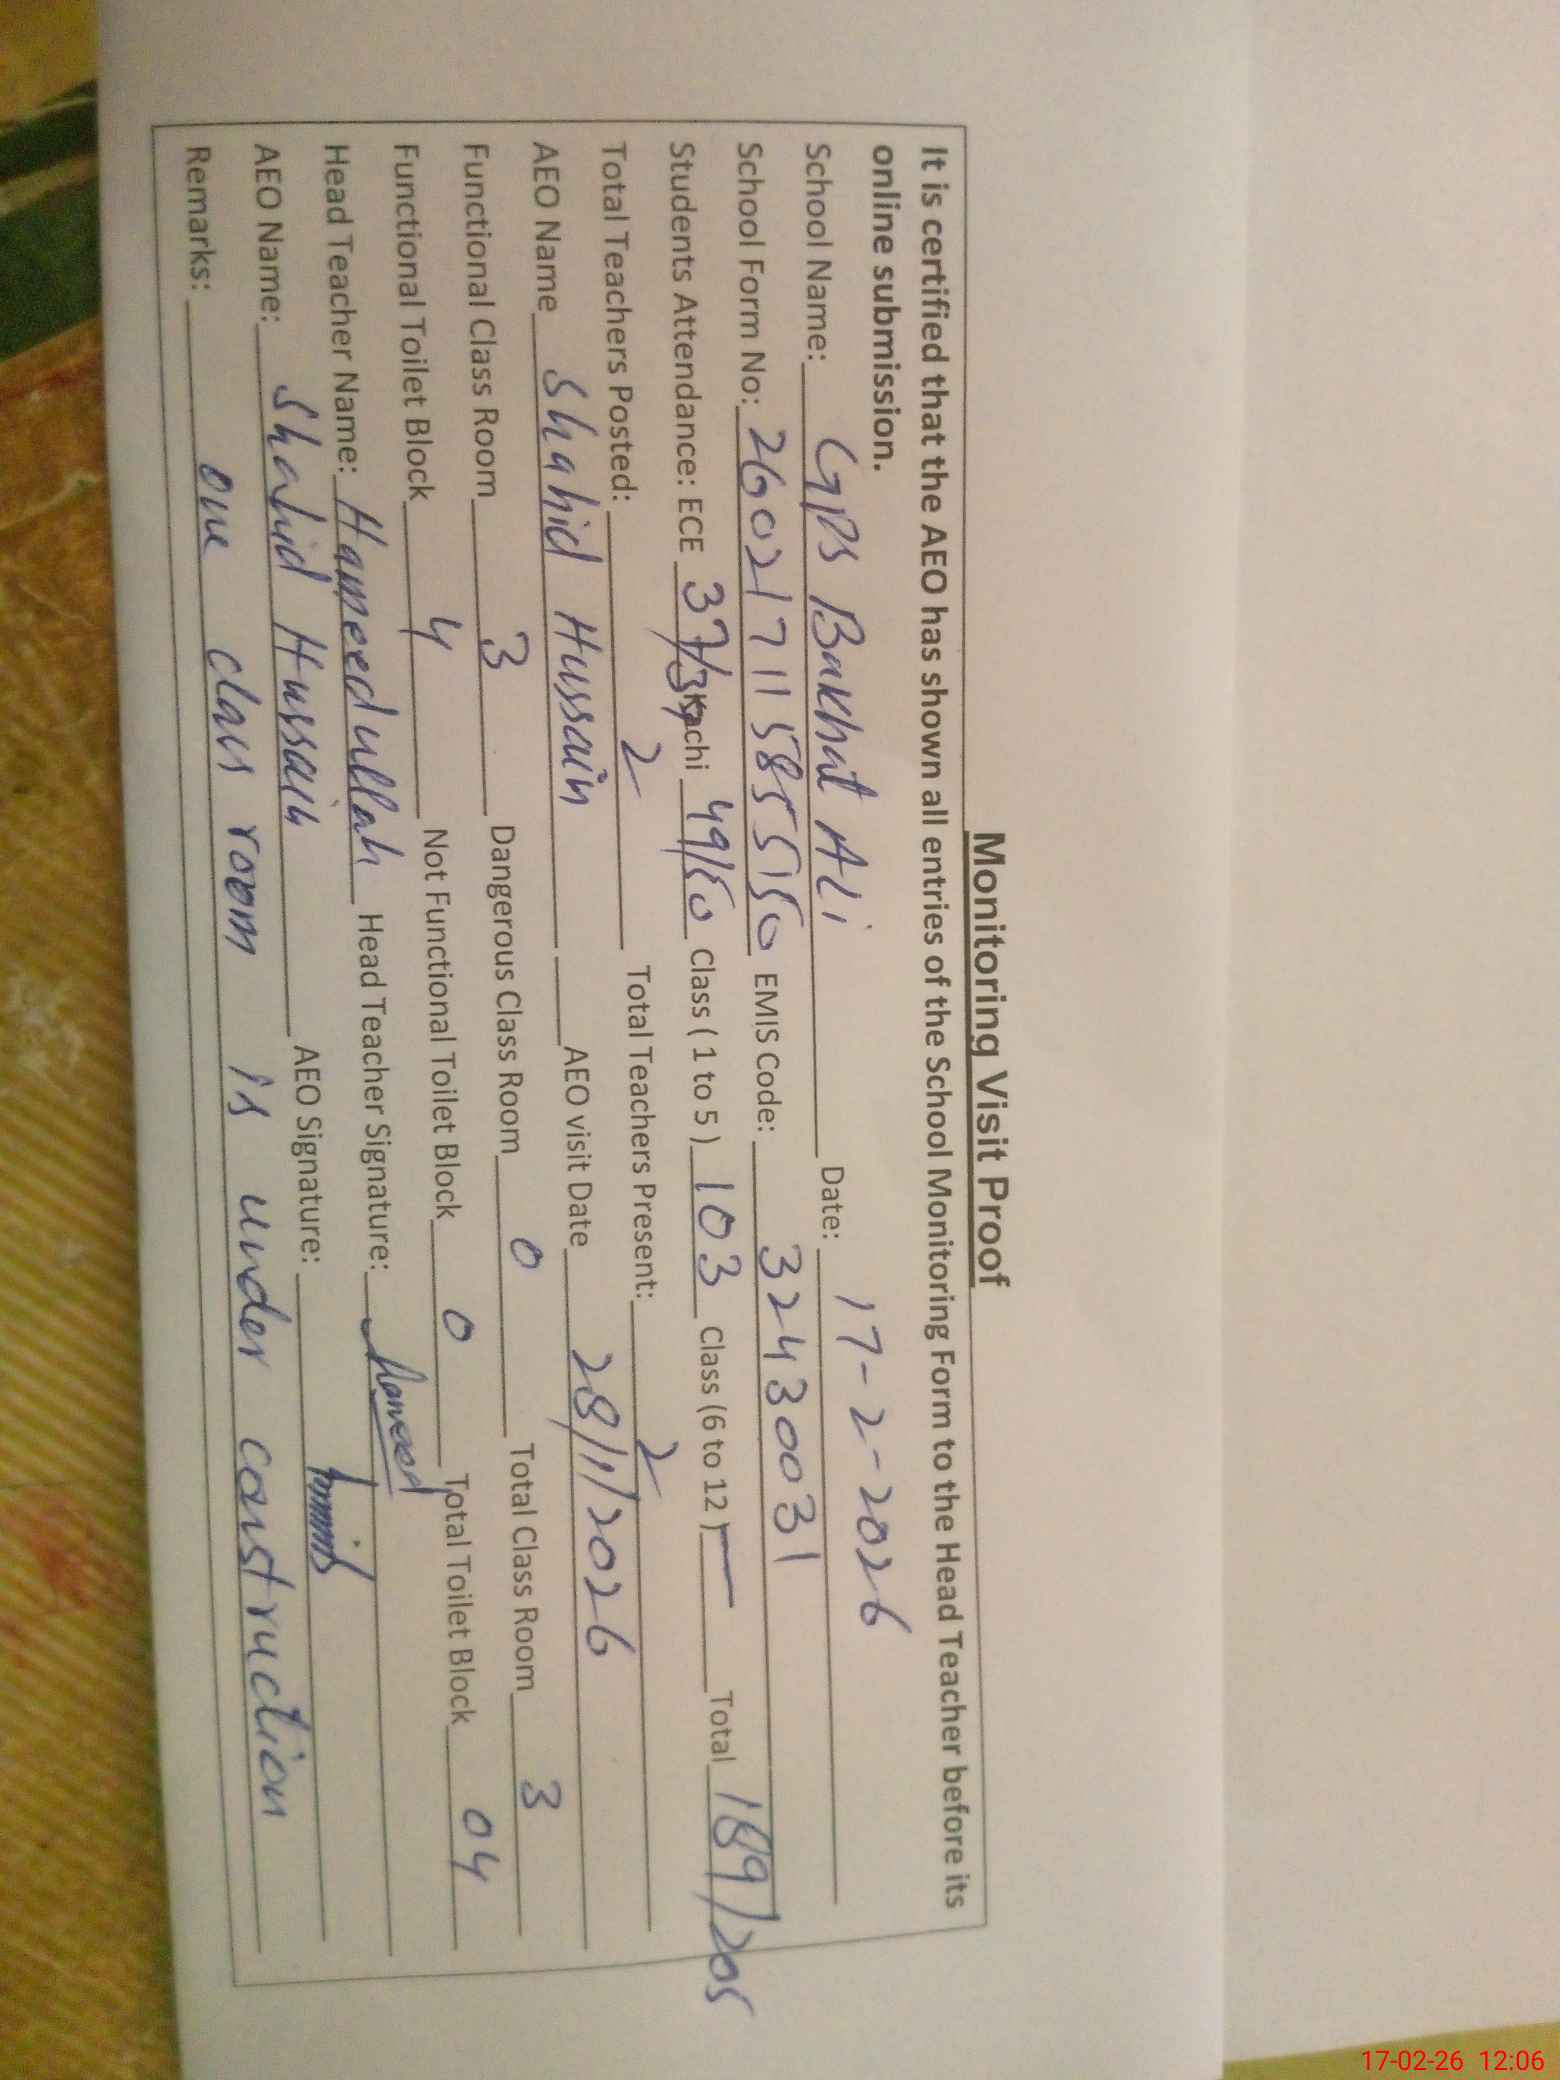 Monitoring Visit Proof
It is certified that the AEO has shown all entries of the School Monitoring Form to the Head Teacher before its
online submission.
School Name: GPS Bakhat Ali Date: 17-2-2026
School Form No: 260217115855150 EMIS Code: 32430031
Students Attendance: ECE 37/ Kachi 49/50 Class ( 1 to 5 ) 103 Class (6 to 12 ) — Total 189/205
Total Teachers Posted: 2 Total Teachers Present: 2
AEO Name Shahid Hussain AEO visit Date 28/1/2026
Functional Class Room 3 Dangerous Class Room 0 Total Class Room 3
Functional Toilet Block 4 Not Functional Toilet Block 0 Total Toilet Block 04
Head Teacher Name: Hameedullah Head Teacher Signature: Hameed
AEO Name: Shahid Hussain AEO Signature:
Remarks: one class room is under construction
17-02-26 12:06